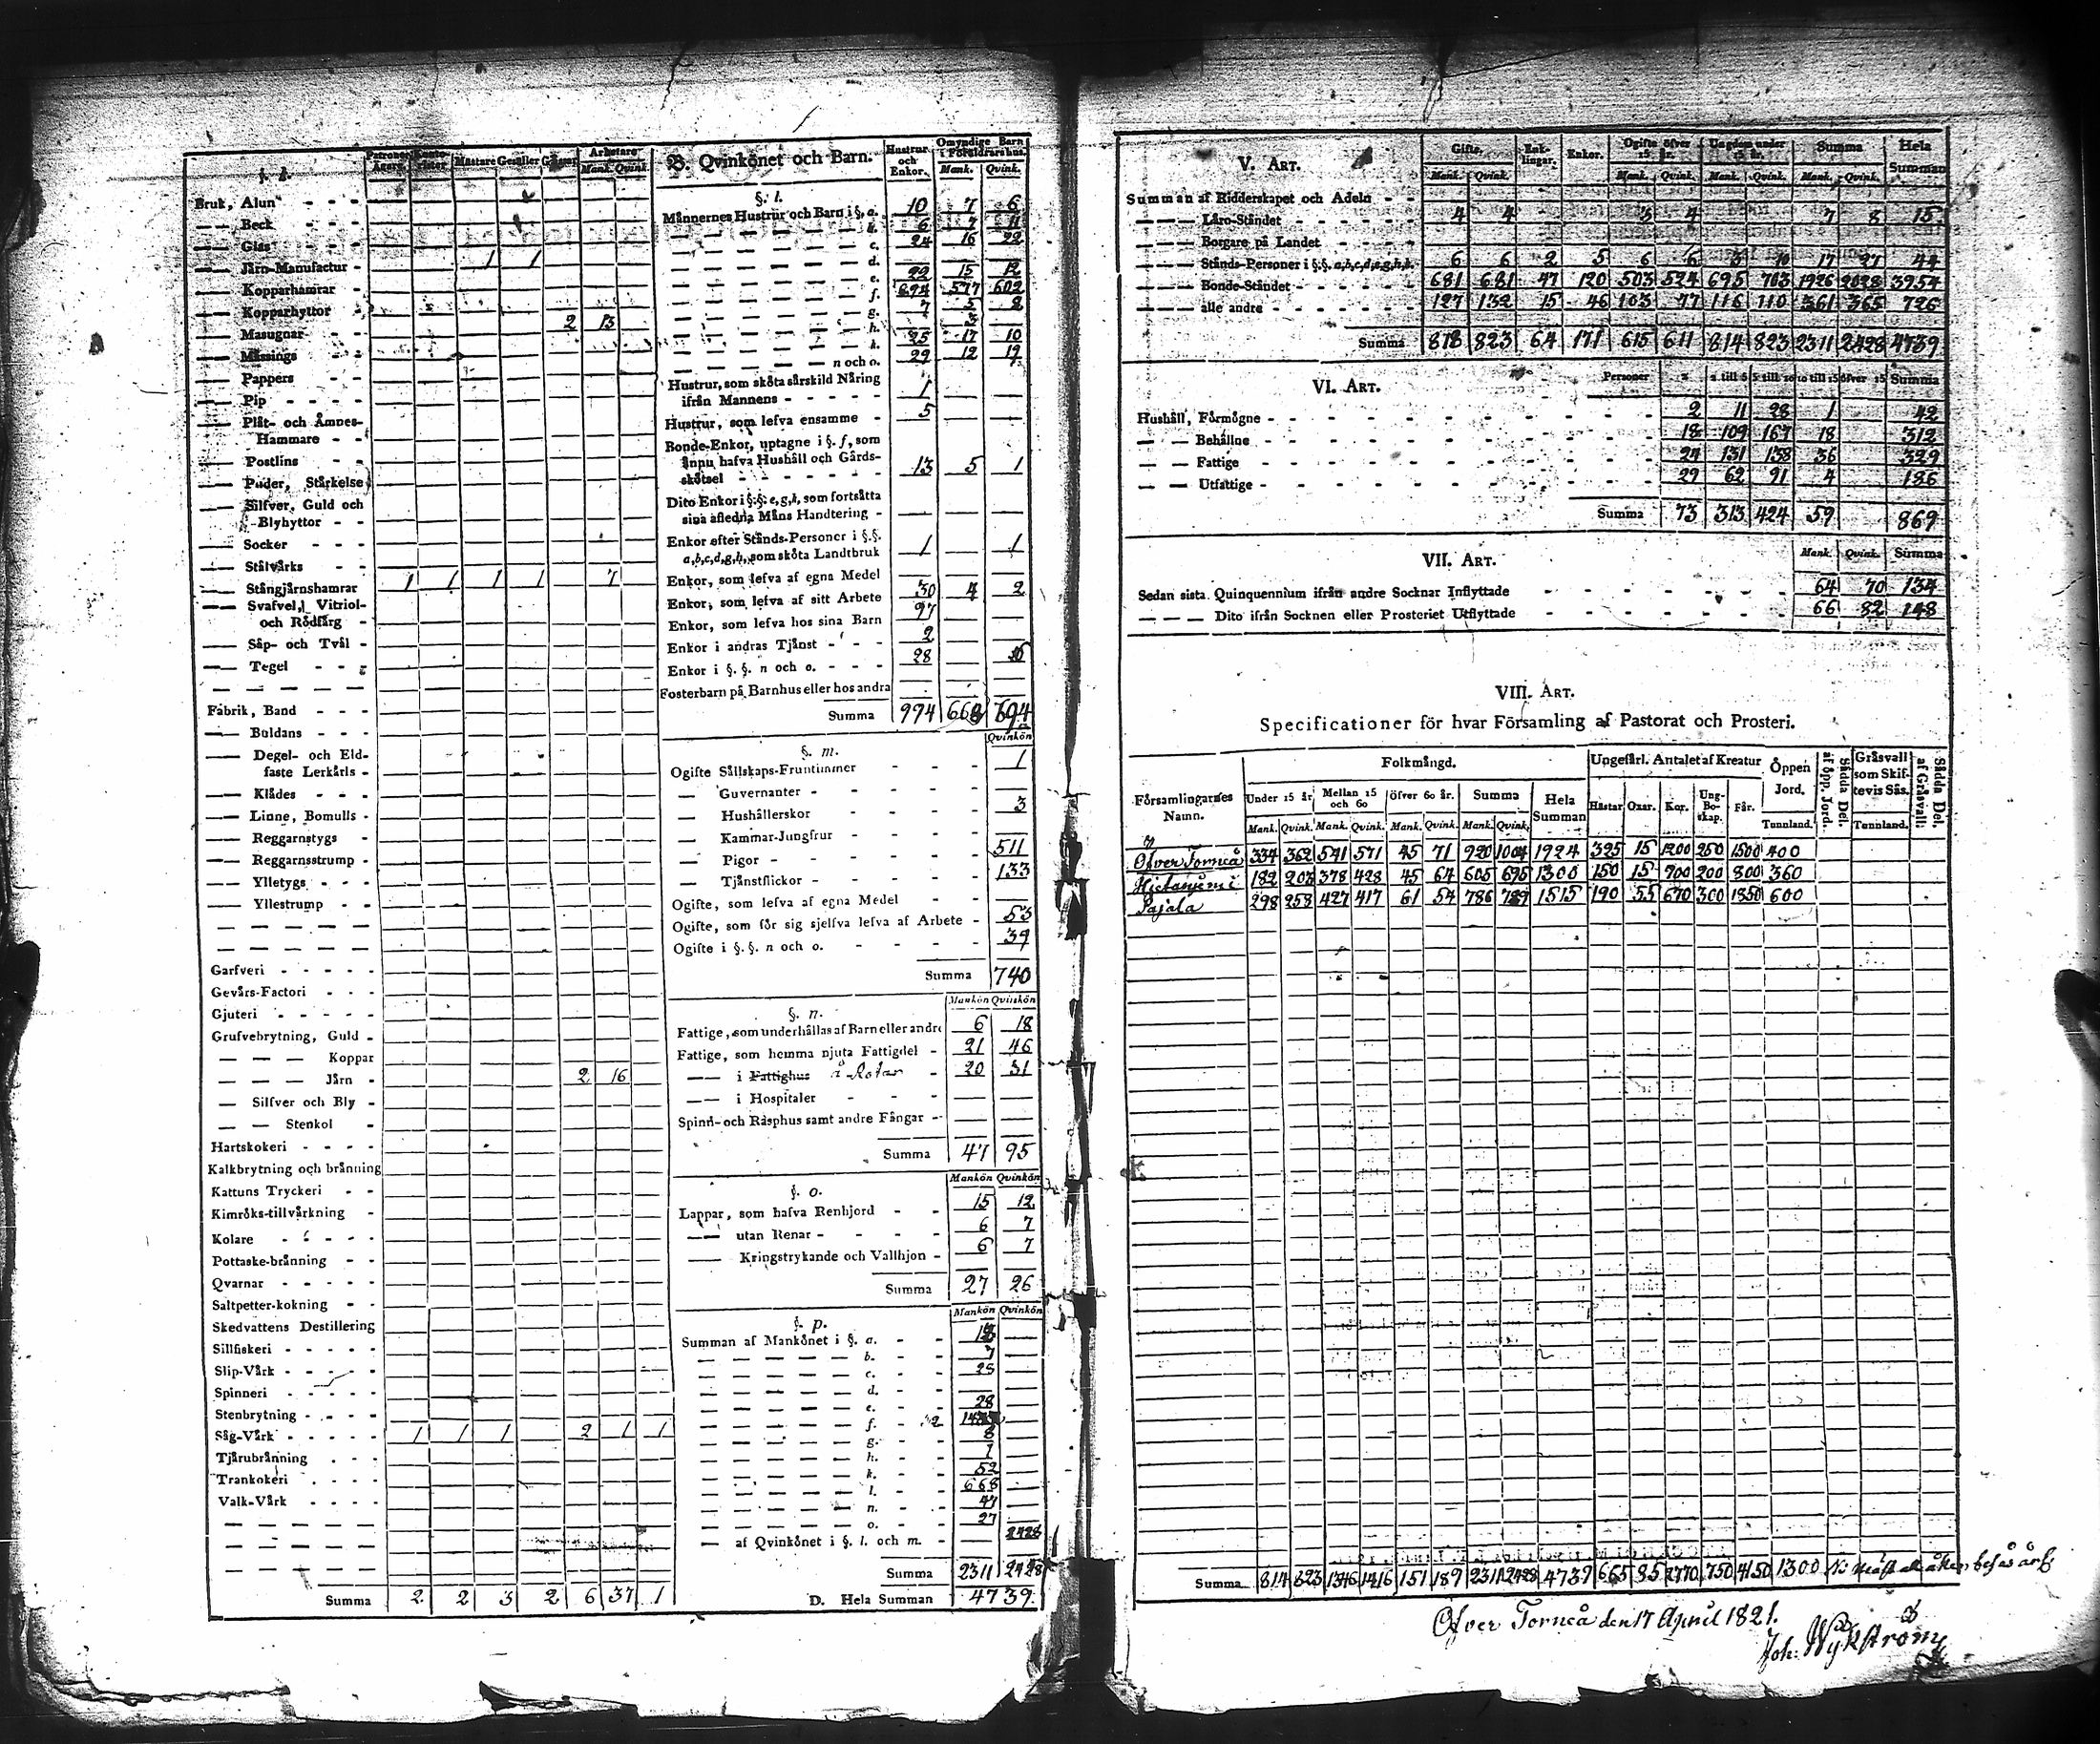 §. k.
Patroner Ägare
Mästare Gesäller
Arbetare
Mank. Qvink.
Bruk, Alun
Beck
Glas
Järn-Manufactur 1 1
Kopparhamrar
Kopparhyttor
Masugnar 2 13
Mässings
Pappers
Pip
Plåt- och Ämnes-
Hammare
Postlins
Puder, Stärkelse
Silfver, Guld och
Blyhyttor
Socker
Stålvärks
Stångjärnshamrar 1 1 1 1 7
Svafvel, Vitriol-
och Rödfärg
Såp- och Tvål
Tegel
Fabrik, Band
Buldans
Degel- och Eld-
faste Lerkärls
Klädes
Linne, Bomulls
Reggarnstygs
Reggarnsstrump
Ylletygs
Yllestrump
Garfveri
Gevärs-Factori
Gjuteri
Grufvebrytning, Guld
Koppar
Järn 2 16
Silfver och Bly
Stenkol
Hartskokeri
Kalkbrytning och bränning
Kattuns Tryckeri
Kimröks-tillvärkning
Kolare
Pottaske-bränning
Qvarnar
Saltpetter-kokning
Skedvattens Destillering
Sillfiskeri
Slip-Värk
Spinneri
Stenbrytning
Såg-Värk 1 1 1 2 1 1
Tjärubränning
Trankokeri
Valk-Värk
Summa 2 2 3 2 6 37 1
B. Qvinkönet och Barn.
Hustrur och Enkor.
Omyndige Barn i Föräldrarshus.
Mank. Qvink.
§. l.
Männernes Hustrur och Barn i §. a. 10 7 6
b. 6 7 11
c. 24 16 22
d.
e. 22 15 12
f. 694 577 602
g. 7 5 8
h. 3
k. 25 17 10
n och o. 29 12 19
Hustrur, som sköta särskild Näring
ifrån Mannens 1
Hustrur, som lefva ensamme 5
Bonde-Enkor, uptagne i §. f, som
ännu hafva Hushåll och Gårds-
skötsel 13 5 1
Dito Enkor i §.§. e, g, k, som fortsätta
sina aflednä Mäns Handtering
Enkor efter Stånds-Personer i §.§.
a, b, c, d, g, h, som sköta Landtbruk 1 1
Enkor, som lefva af egna Medel
Enkor, som lefva af sitt Arbete 30 4 2
Enkor, som lefva hos sina Barn 97
Enkor i andras Tjänst 2
Enkor i §.§. n och o. 28
Fosterbarn på Barnhus eller hos andra
Summa 994 668 694
Qvinkön
§. m.
Ogifte Sällskaps-Fruntimmer 1
Guvernanter
Hushållerskor 3
Kammar-Jungfrur
Pigor 511
Tjänstflickor 133
Ogifte, som lefva af egna Medel
Ogifte, som för sig sjelfva lefva af Arbete 53
Ogifte i §.§. n och o. 39
Summa 740
Mankön Qvinkön
§. n.
Fattige, som underhållas af Barn eller andre 6 18
Fattige, som hemma njuta Fattigdel 21 46
i Fattighus å Rotar 20 31
i Hospitaler
Spinn- och Rasphus samt andre Fångar
Summa 47 95
Mankön Qvinkön
§. o.
Lappar, som hafva Renhjord 15 12
utan Renar 6 7
Kringstrykande och Vallhjon 6 7
Summa 27 26
Mankön Qvinkön
§. p.
Summan af Mankönet i §. a.
b. 7
c. 25
d.
e. 28
f.
g. 8
h. 1
k. 52
l. 668
n. 47
o. 27
af Qvinkönet i §. l. och m. 2428
Summa 2311 2428
D. Hela Summan 4739.
V. Art.
Gifte. Enklingar. Enkor. Ogifte öfver 15 år. Ungdom under 15 år. Summa Hela Summan
Mank. Qvink. Mank. Qvink. Mank. Qvink. Mank. Qvink.
Summan af Ridderskapet och Adeln
Läro-Ståndet 4 4 3 4 7 8 15
Borgare på Landet
Stånds-Personer i §.§. a, b, c, d, e, g, h, k. 6 6 2 5 6 6 3 10 17 27 44
Bonde-Ståndet 681 681 47 120 503 524 695 703 1926 2028 3954
alle andre 127 132 15 46 103 77 116 110 361 365 726
Summa 818 823 64 171 615 611 814 823 2311 2428 4739
VI. Art.
Personer 2 2 till 5 5 till 10 10 till 15 öfver 15 Summa
Hushåll, Förmögne 2 11 28 1 42
Behållne 18 109 167 18 312
Fattige 24 131 138 36 329
Utfattige 29 62 91 4 186
Summa 73 313 424 59 869
VII. Art.
Mank. Qvink. Summa
Sedan sista Quinquennium ifrån andre Socknar Inflyttade 64 70 134
Dito ifrån Socknen eller Prosteriet Utflyttade 66 82 148
VIII. Art.
Specificationer för hvar Församling af Pastorat och Prosteri.
Församlingarnes Namn.
Folkmängd.
Ungefärl. Antalet af Kreatur
Öppen Jord.
Sådda Del. af öpp. Jord.
Gräsvall som Skiftevis Sås.
Sådda Del. af Gräsvall.
Under 15 år. Mellan 15 och 60 Öfver 60 år. Summa Hela Summan Hästar Oxar. Kor. Ung-Boskap. Får.
Mank. Qvink. Mank. Qvink. Mank. Qvink. Mank. Qvink. Tunnland. Tunnland.
Öfver Torneå 334 362 541 571 45 71 920 1004 1924 325 15 1200 250 1500 400
Hietaniemi 182 203 378 428 45 64 605 695 1300 150 15 900 200 800 360
Pajala 298 258 427 417 61 54 786 729 1515 190 55 670 300 1850 600
Summa 814 823 1346 1416 151 189 2311 2428 4739 665 85 2770 750 4150 1300
Öfver Torneå den 17 April 1821.
Joh. Wykström